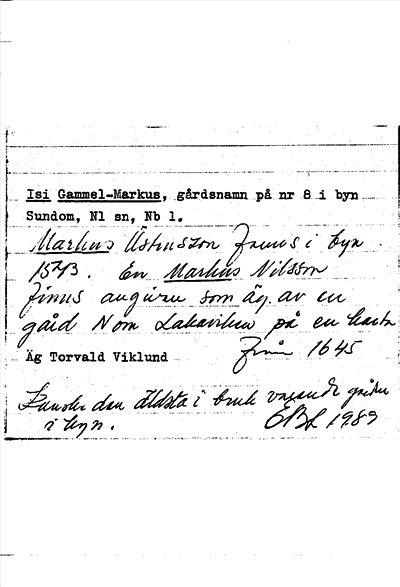 Isi Gammel-Markus, gårdsnamn på nr 8 i byn
Sundom, Nl sn, Nb l.
Markus Östensson finns i byn
1543. En Markus Nilsson
finns angiven som äg. av en
gård N om Lakaviken på en karta
Äg Torvald Viklund från 1645
Kanske den äldsta i bruk varande gården
i byn. EBL 1989